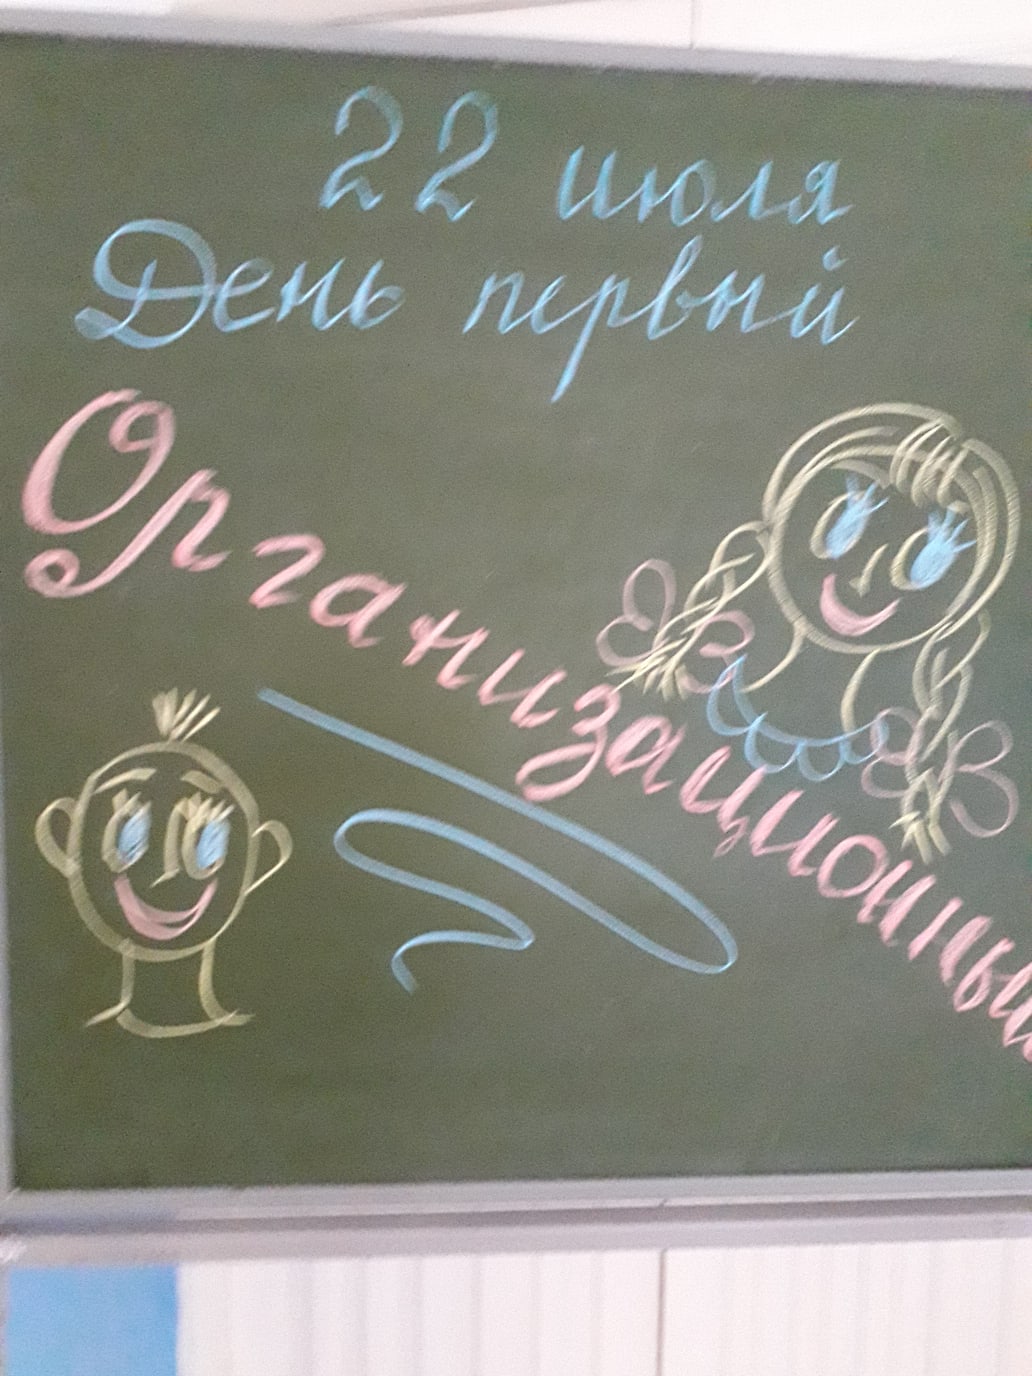 22 июля
День первый
Организационный